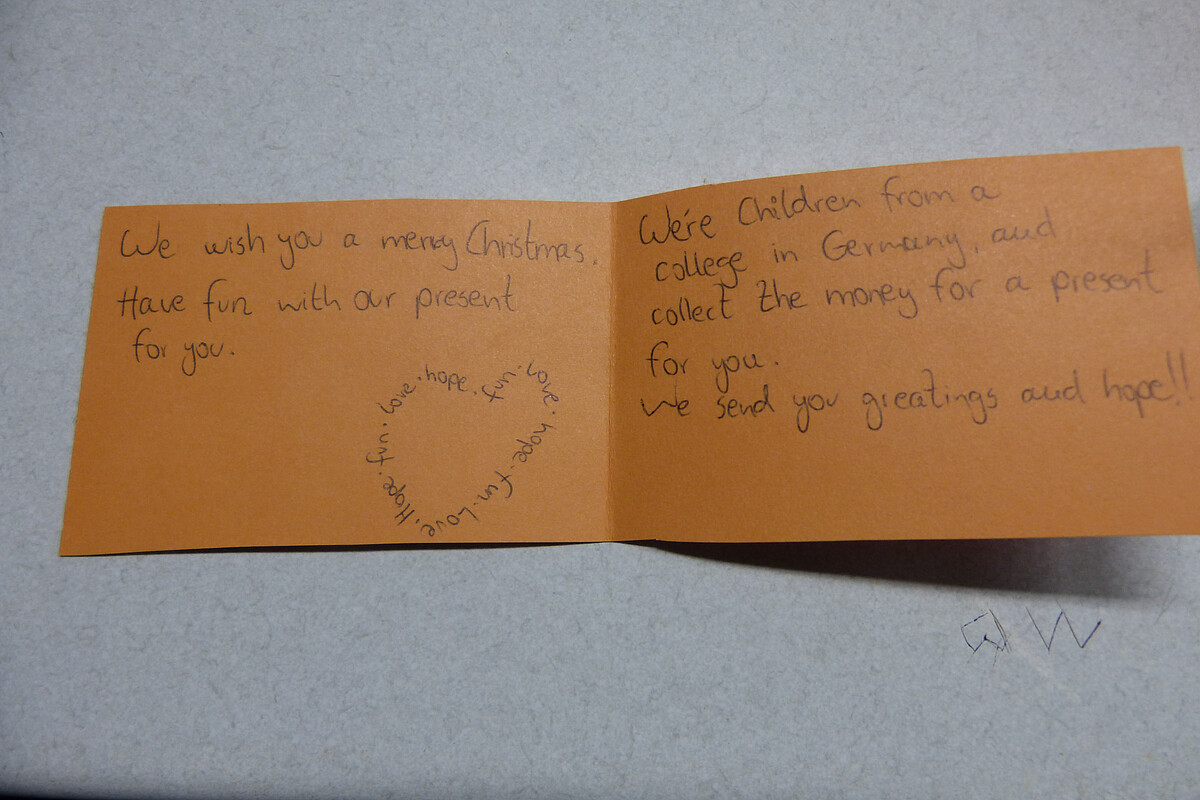 We wish you a merry Christmas.
Have fun with our present
for you.
Hope. fun. love. hope. fun. love. hope. fun. Love.
We're Children from a
college in Germany, and
collect the money for a present
for you.
We send you greatings and hope!!
W